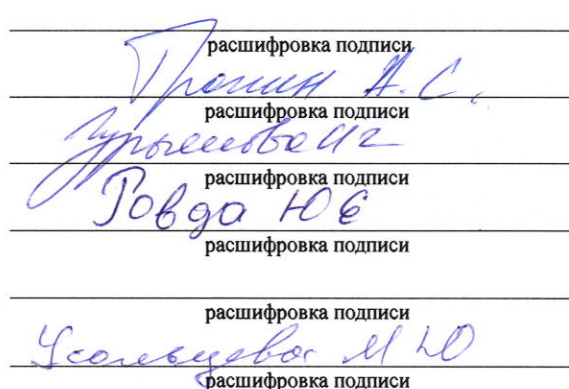 расшифровка подписи
Пронин А.С.
расшифровка подписи
расшифровка подписи
Говда Ю Е
расшифровка подписи
расшифровка подписи
Усольцева М Ю
расшифровка подписи